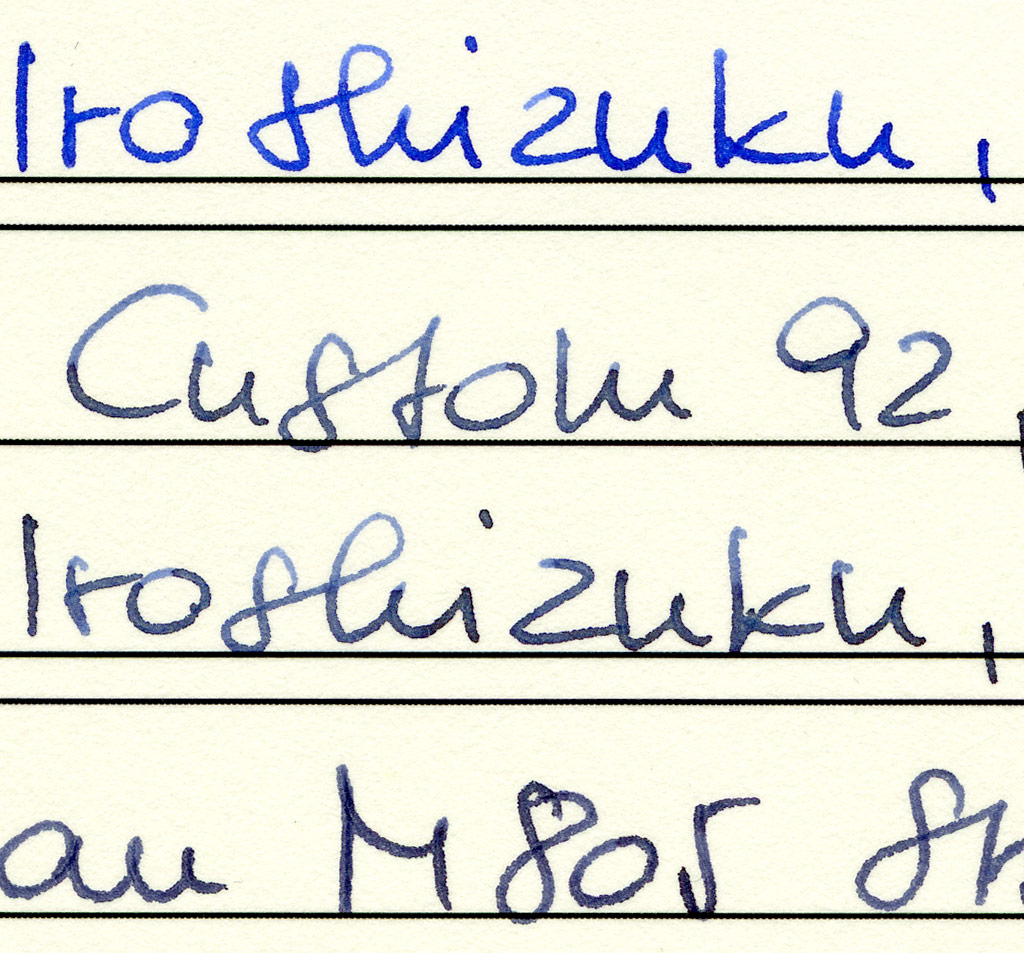 Iroshizuku,
Custom 92,
Iroshizuku,
an M805